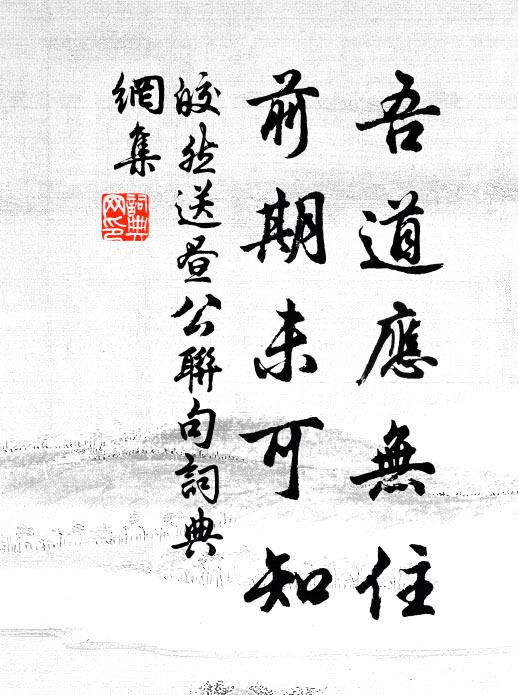 吾道應無住
前期未可知
皎然送昼公聯句詞典
網集
詞典
网印